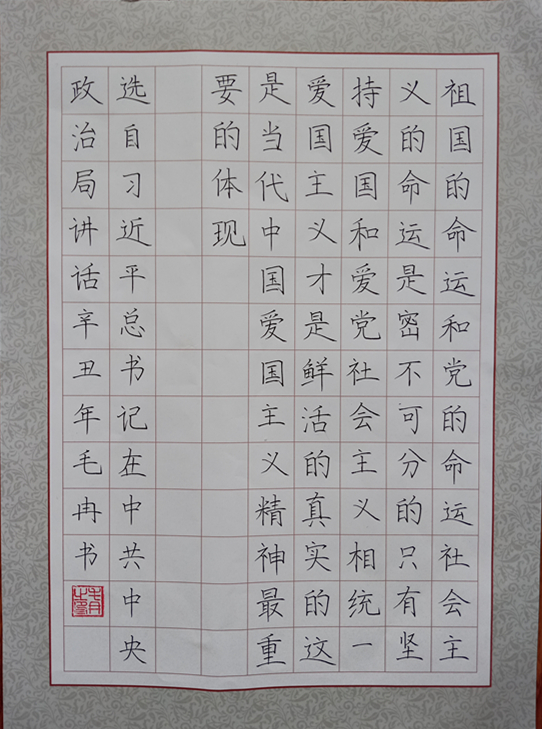 祖国的命运和党的命运社会主
义的命运是密不可分的只有坚
持爱国和爱党社会主义相统一
爱国主义才是鲜活的真实的这
是当代中国爱国主义精神最重
要的体现
选自习近平总书记在中共中央
政治局讲话辛丑年毛冉书